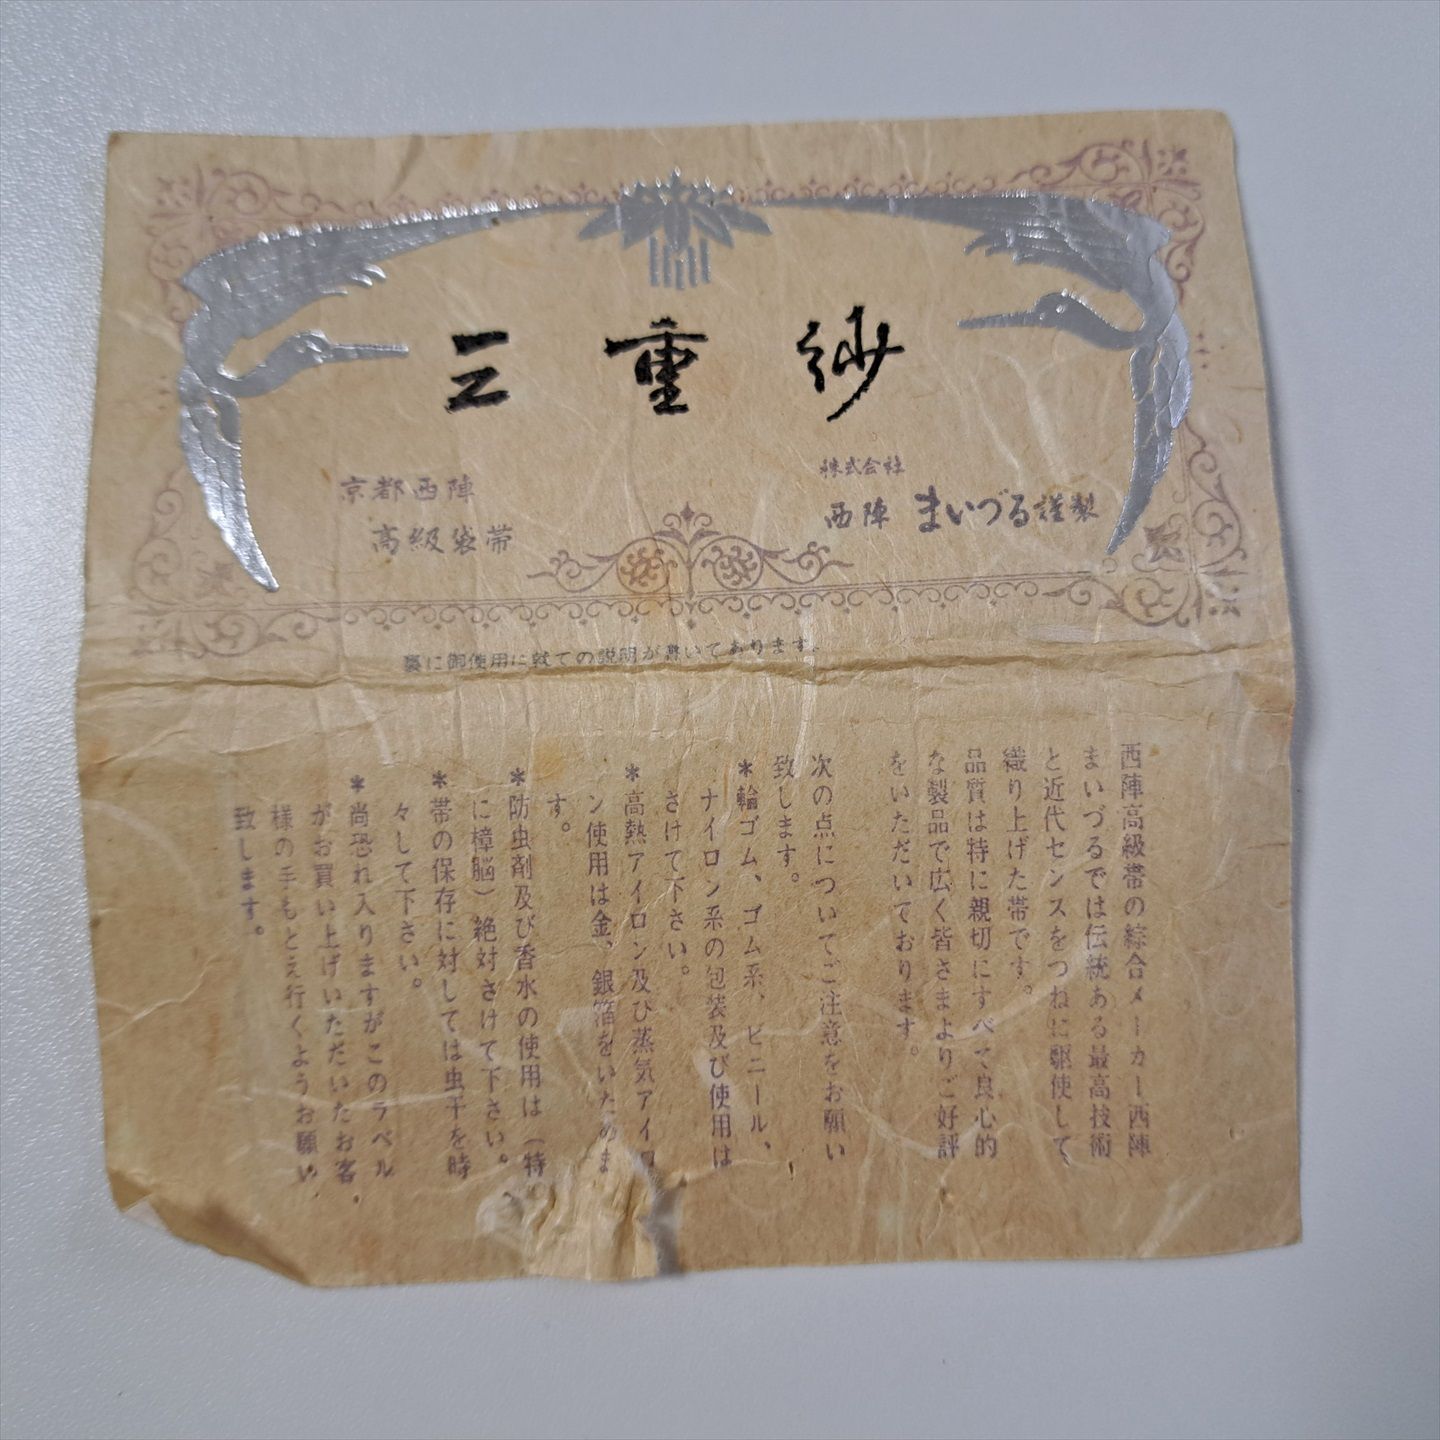 三重紗
京都西陣
高級袋帯
株式会社
西陣 まいづる謹製
裏に御使用に就ての説明が書いてあります。
西陣高級帯の綜合メーカー西陣
まいづるでは伝統ある最高技術
と近代センスをつねに駆使して
織り上げた帯です。
品質は特に親切にすべて良心的
な製品で広く皆さまよりご好評
をいただいております。
次の点についてご注意をお願い
致します。
*輪ゴム、ゴム系、ビニール、
ナイロン系の包装及び使用は
さけて下さい。
*高熱アイロン及び蒸気アイロ
ン使用は金、銀箔をいためま
す。
*防虫剤及び香水の使用は(特
に樟脳)絶対さけて下さい。
*帯の保存に対しては虫干を時
々して下さい。
*尚恐れ入りますがこのラベル
がお買い上げいただいたお客
様の手もとえ行くようお願い
致します。